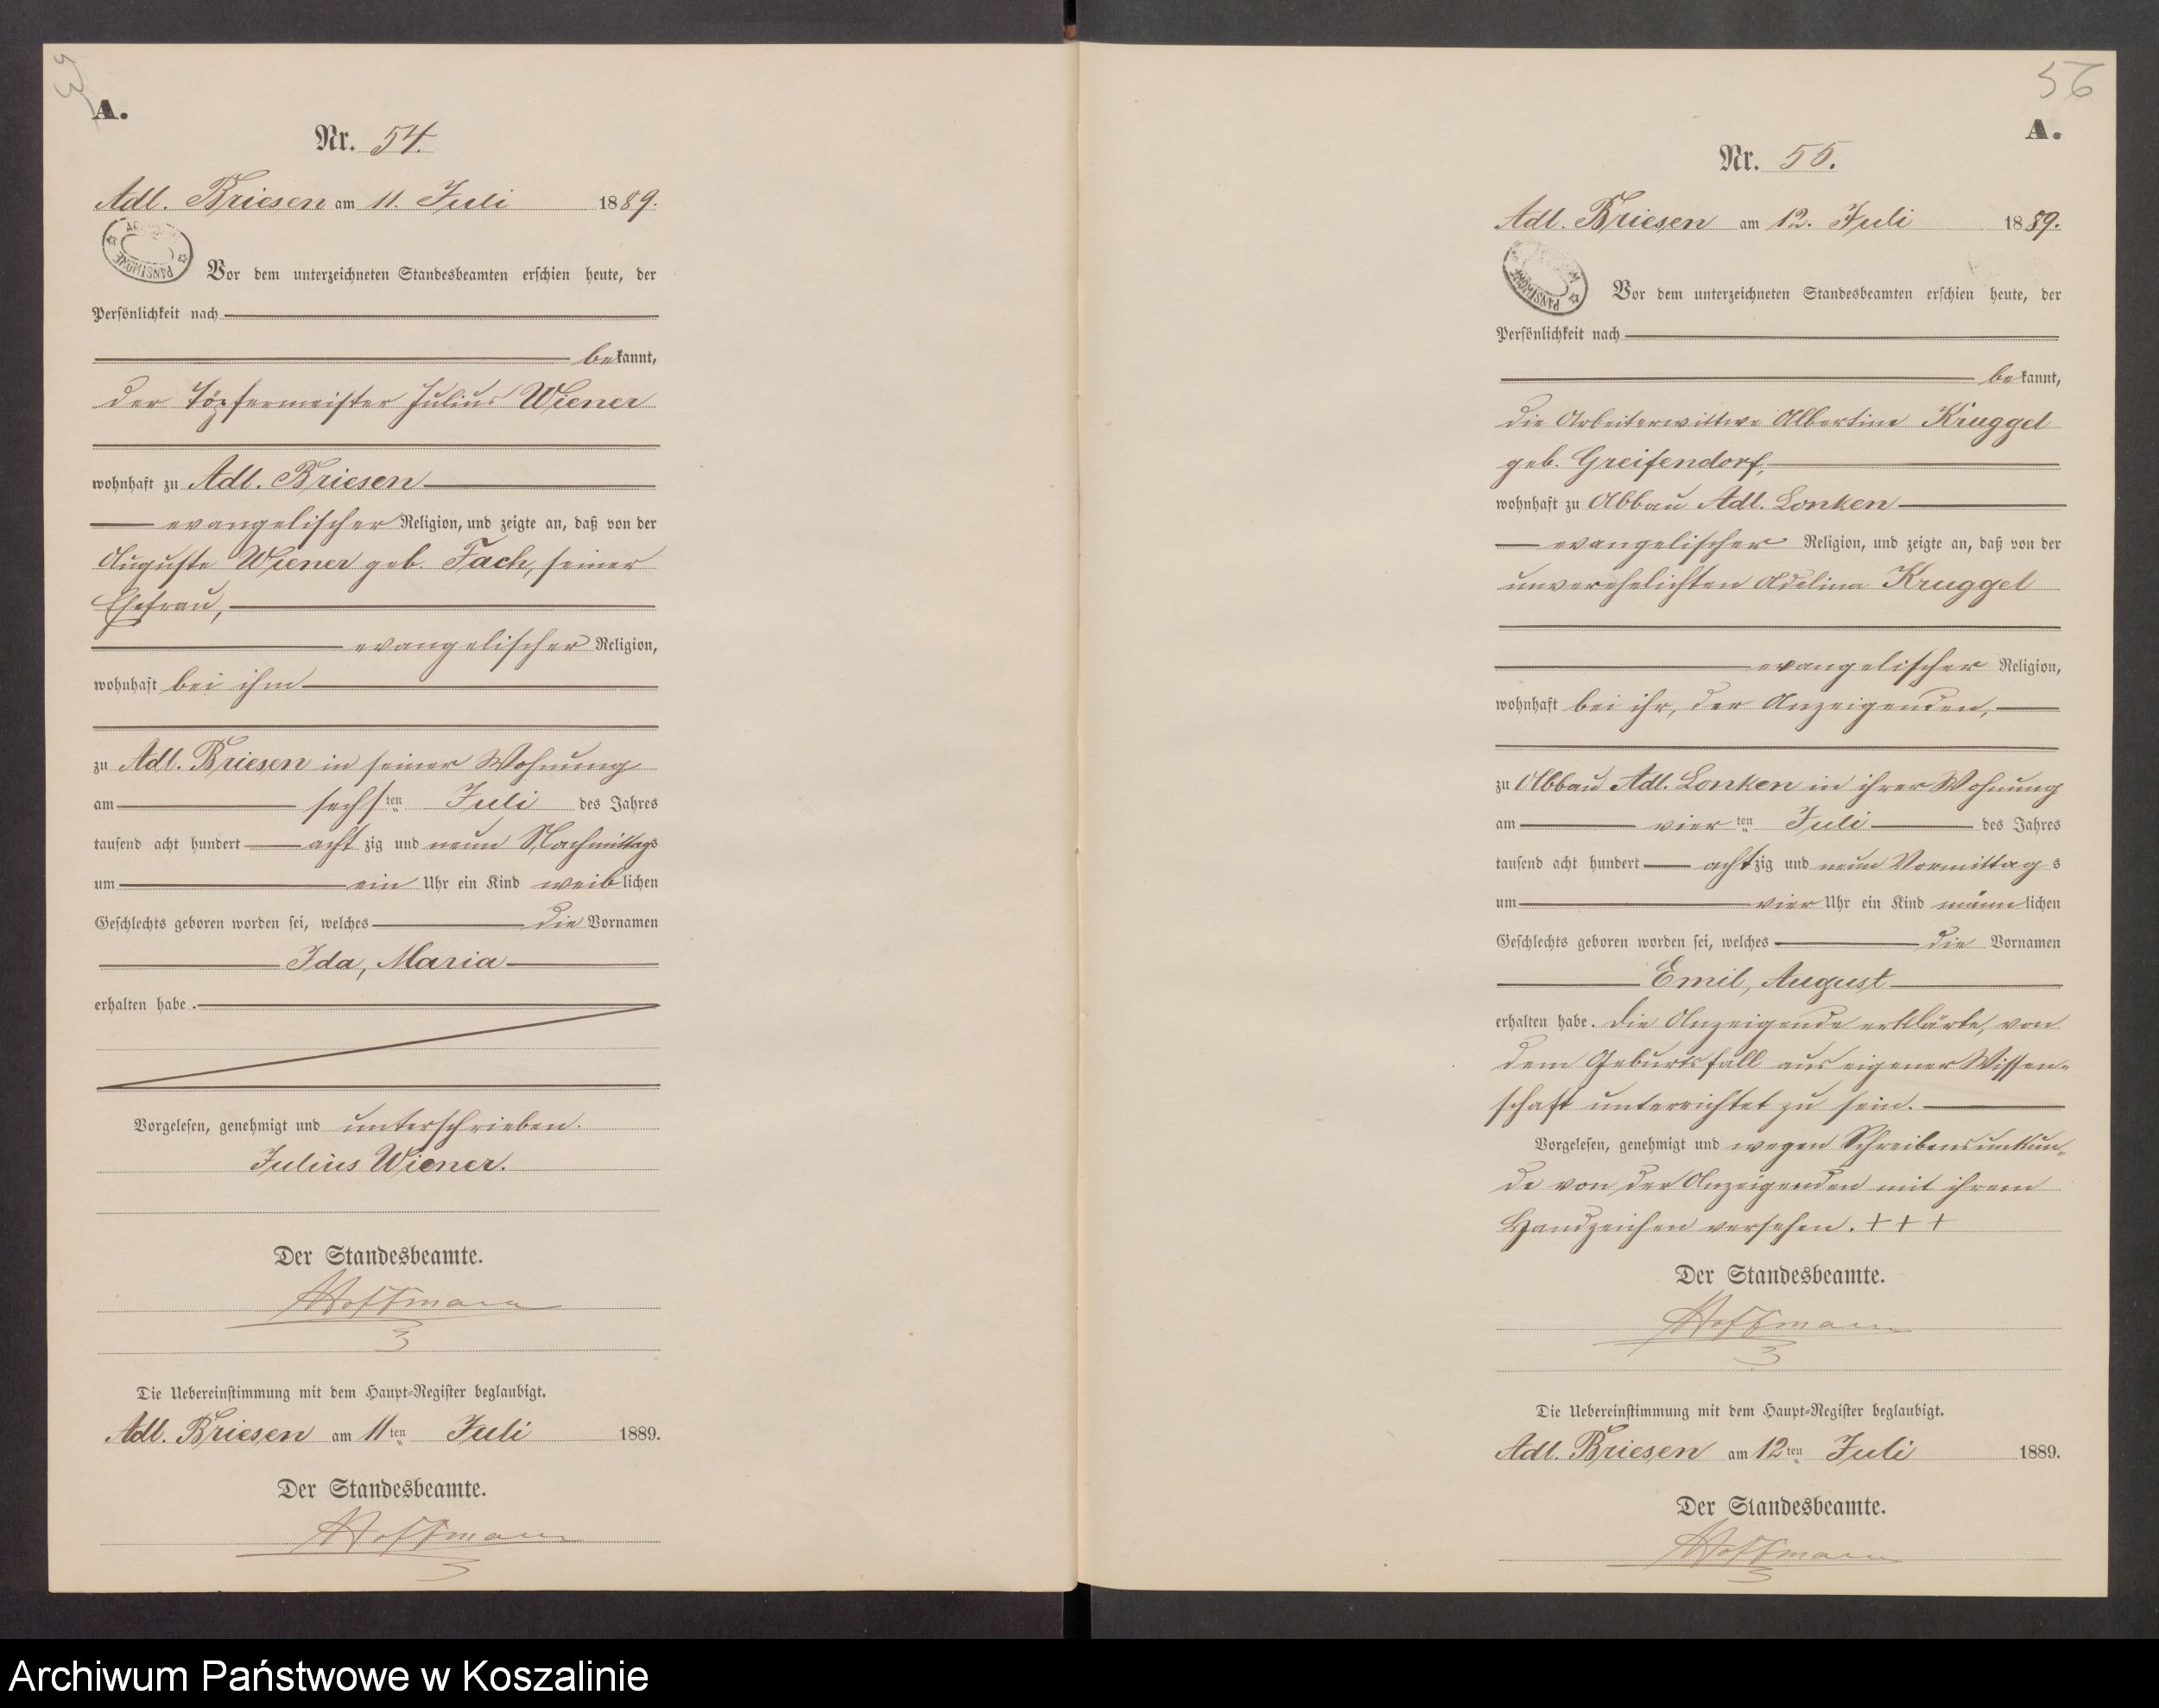 A.
Nr. 54.
Adl. Briesen am 11. Juli 1889.
Vor dem unterzeichneten Standesbeamten erschien heute, der
Persönlichkeit nach
bekannt,
der Töpfermeister Julius Wiener
wohnhaft zu Adl. Briesen
evangelischer Religion, und zeigte an, daß von der
Auguste Wiener geb. Fach, seiner
Ehefrau,
evangelischer Religion,
wohnhaft bei ihm
zu Adl. Briesen in seiner Wohnung
am sechsten Juli des Jahres
tausend acht hundert achtzig und neun Nachmittags
um ein Uhr ein Kind weiblichen
Geschlechts geboren worden sei, welches die Vornamen
Ida, Maria
erhalten habe.
Vorgelesen, genehmigt und unterschrieben.
Julius Wiener.
Der Standesbeamte.
Hoffmann
Die Uebereinstimmung mit dem Haupt-Register beglaubigt.
Adl. Briesen am 11ten Juli 1889.
Der Standesbeamte.
Hoffmann
56
A.
Nr. 55.
Adl. Briesen am 12. Juli 1889.
Vor dem unterzeichneten Standesbeamten erschien heute, der
Persönlichkeit nach
bekannt,
die Arbeiterwittwe Albertine Kruggel
geb. Greifendorf,
wohnhaft zu Abbau Adl. Lonken
evangelischer Religion, und zeigte an, daß von der
unverehelichten Adeline Kruggel
evangelischer Religion,
wohnhaft bei ihr, der Anzeigenden,
zu Abbau Adl. Lonken in ihrer Wohnung
am vierten Juli des Jahres
tausend acht hundert achtzig und neun Vormittags
um vier Uhr ein Kind männlichen
Geschlechts geboren worden sei, welches die Vornamen
Emil, August
erhalten habe. Die Anzeigende erklärte, von
dem Geburtsfall aus eigener Wissen-
schaft unterrichtet zu sein.
Vorgelesen, genehmigt und wegen Schreibensunkun-
de von der Anzeigenden mit ihrem
Handzeichen versehen. + + +
Der Standesbeamte.
Hoffmann
Die Uebereinstimmung mit dem Haupt-Register beglaubigt.
Adl. Briesen am 12ten Juli 1889.
Der Standesbeamte.
Hoffmann
Archiwum Państwowe w Koszalinie